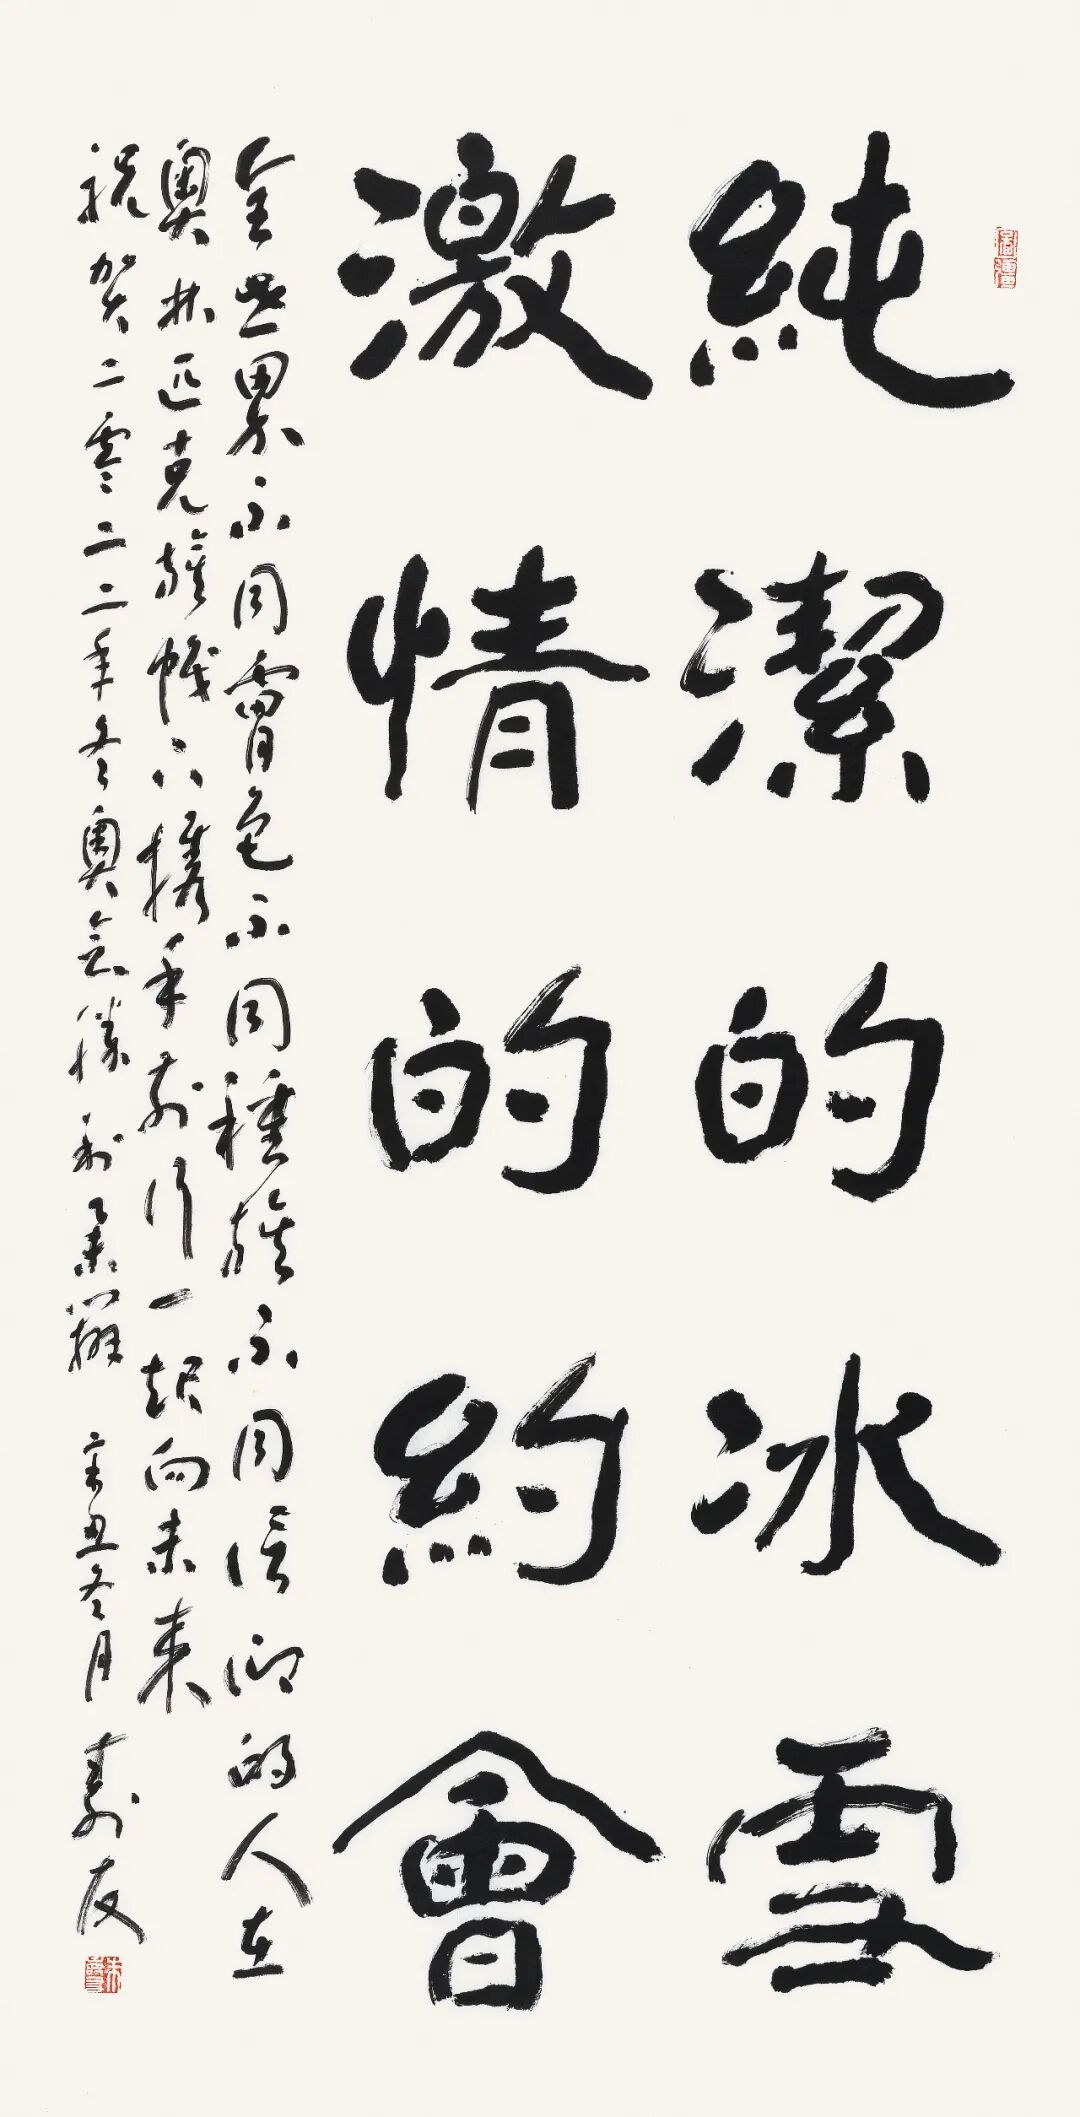 純潔的冰雪
激情的約會
全世界不同膚色不同種族不同信仰的人在
奧林匹克旗幟下攜手前行一起向未來
祝賀二零二二年冬奧會勝利舉辦 辛丑冬月 壽友